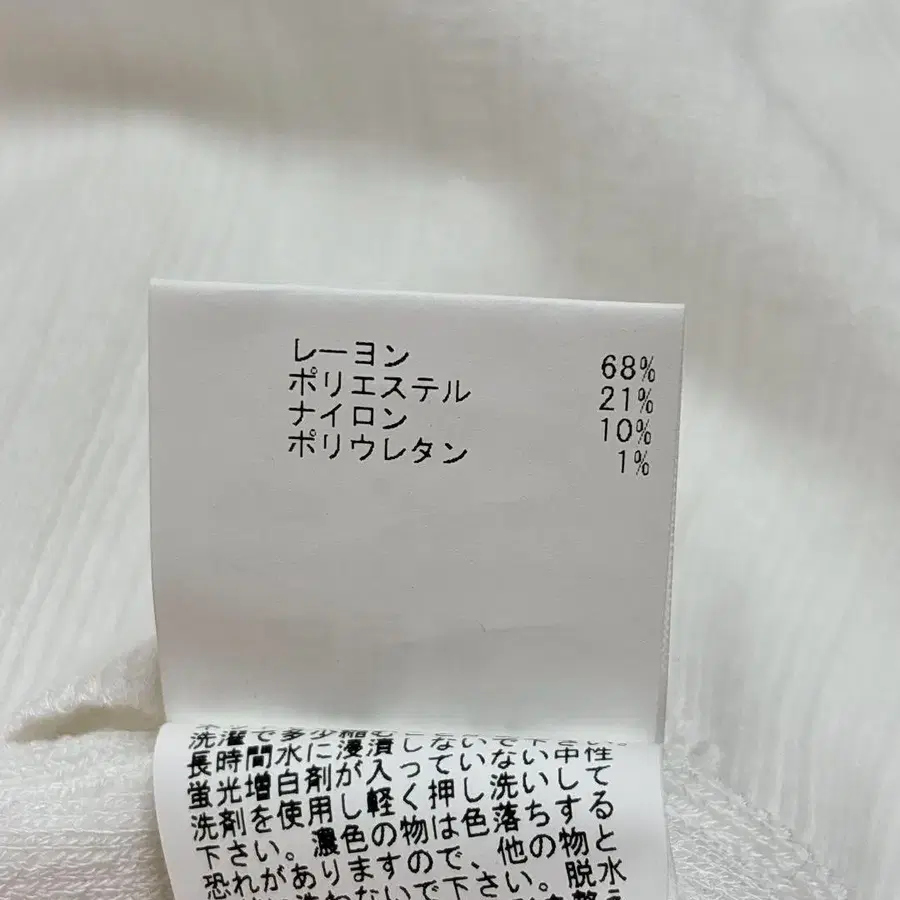 レーヨン 68%
ポリエステル 21%
ナイロン 10%
ポリウレタン 1%
洗濯で多少縮む
長時間水に浸漬しないで下さい。
蛍光増白剤が入っていない中性
洗剤を使用し軽く押し洗いして
下さい。濃色の物は色落ちする
恐れがありますので、他の物と
洗わないで下さい。脱水